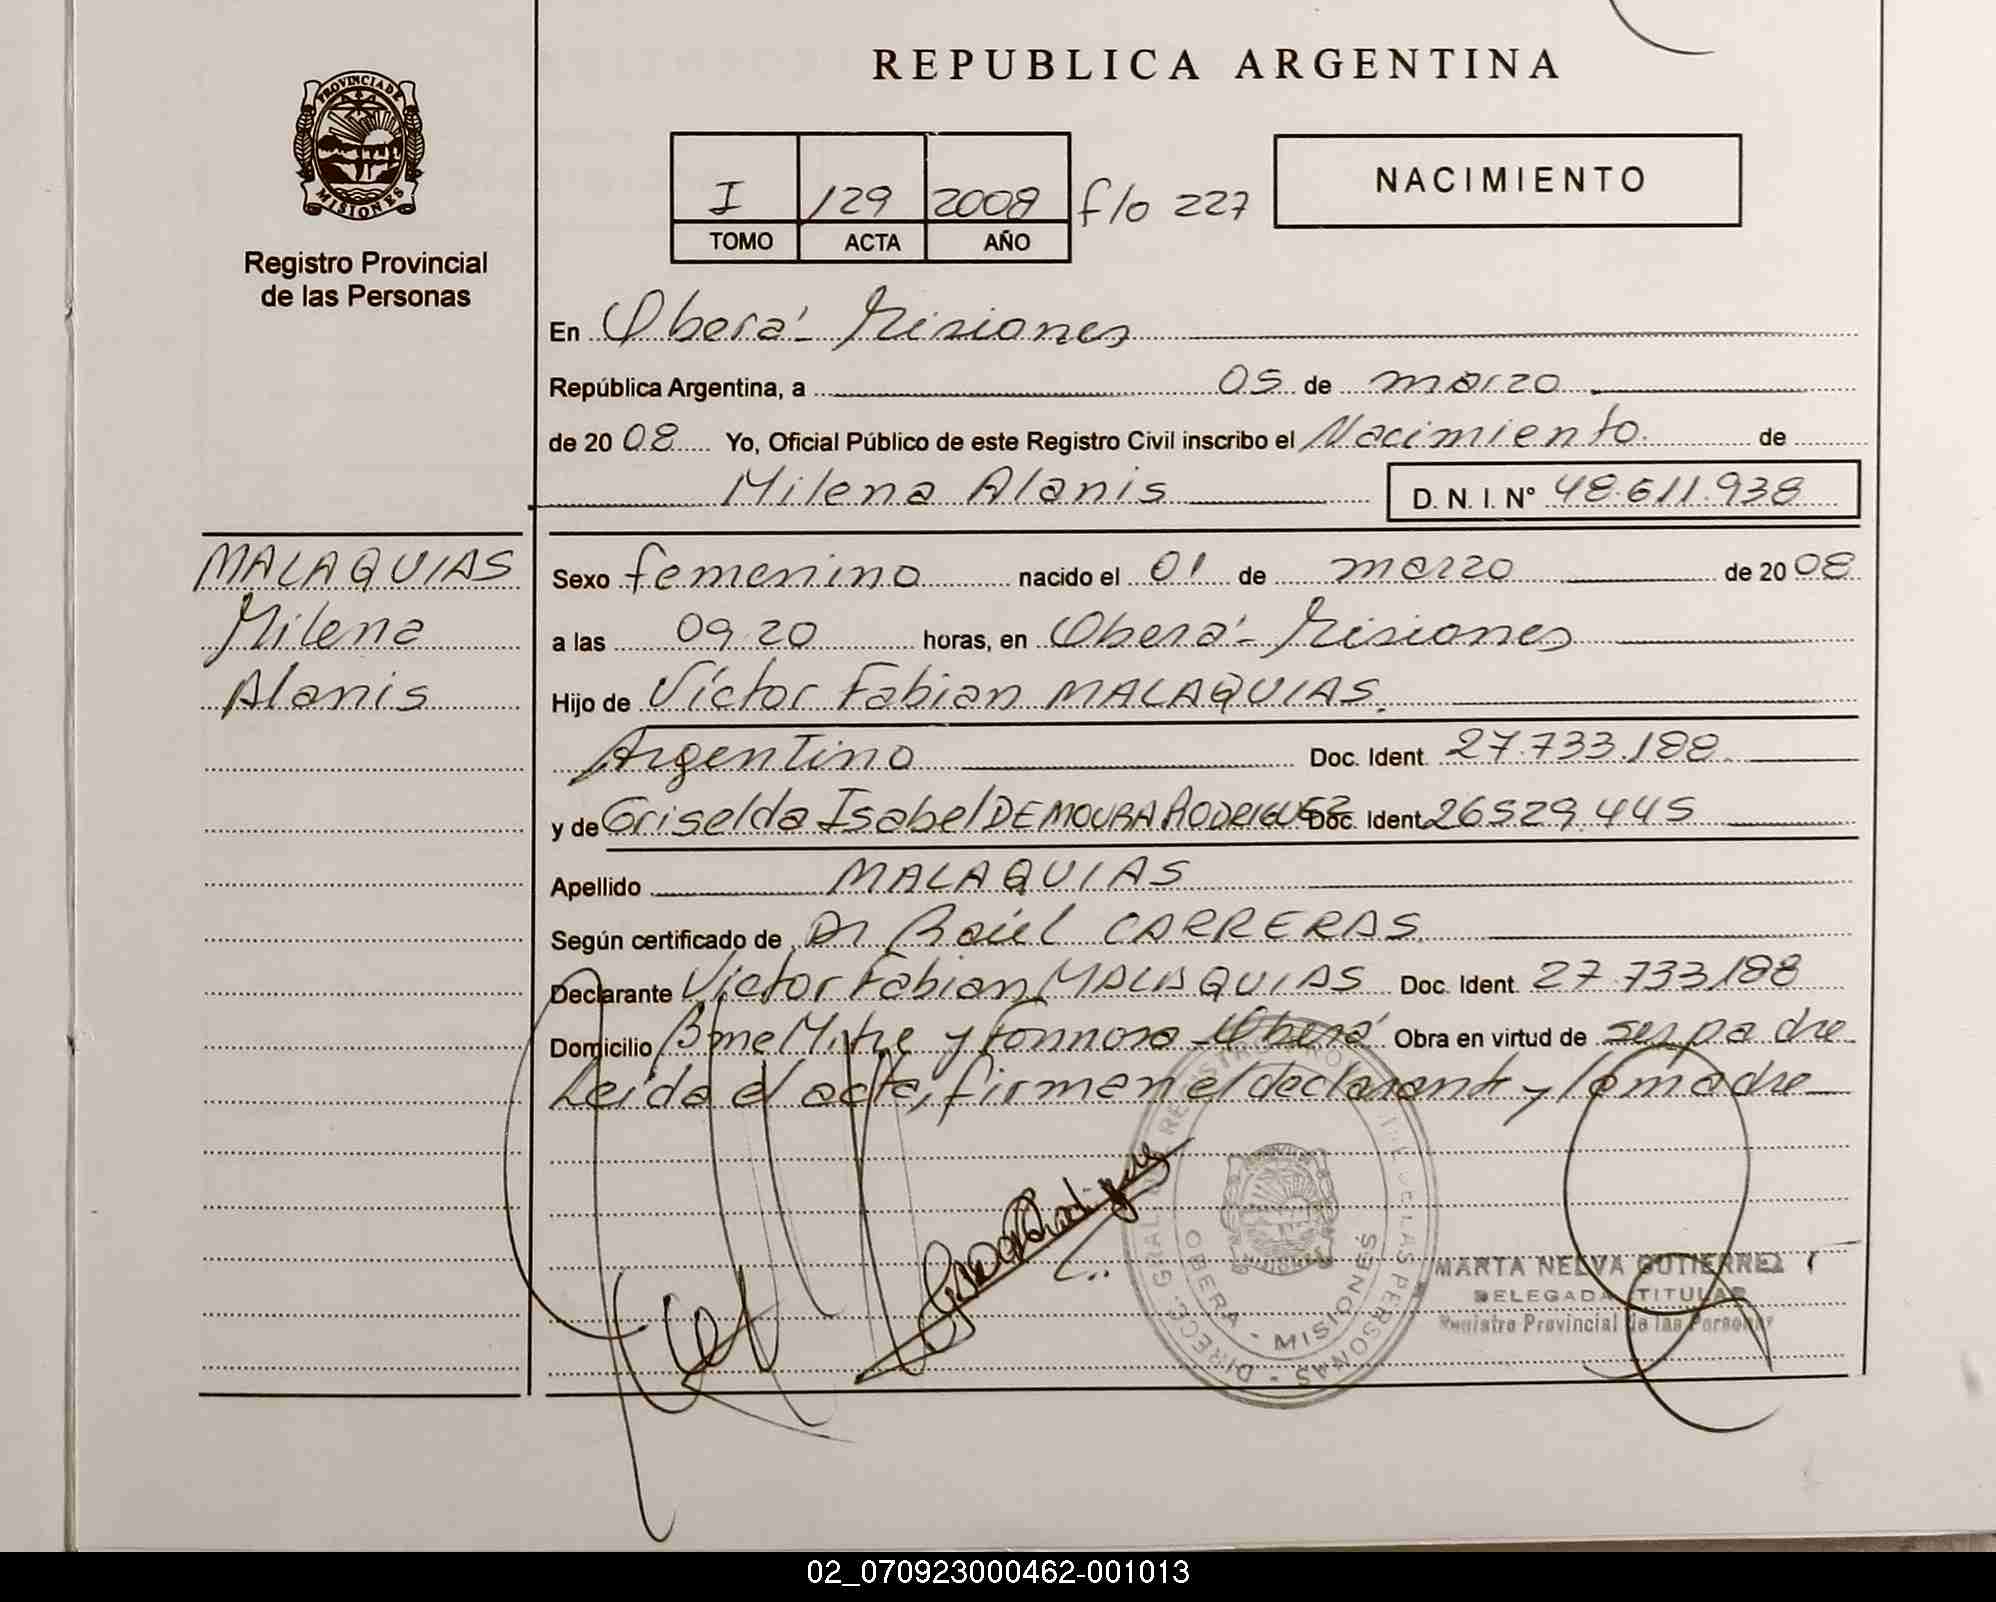 REPUBLICA ARGENTINA
PROVINCIA DE
MISIONES
Registro Provincial
de las Personas
I 129 2008 f/o 227
TOMO ACTA AÑO
NACIMIENTO
En Oberá - Misiones
República Argentina, a 05 de marzo
de 2008 Yo, Oficial Público de este Registro Civil inscribo el Nacimiento de
Milena Alanis D. N. I. N° 48.611.938
MALAQUIAS
Milena
Alanis
Sexo femenino nacido el 01 de marzo de 2008
a las 09.20 horas, en Oberá - Misiones
Hijo de Víctor Fabian MALAQUIAS.
Argentino Doc. Ident. 27.733.188
y de Griselda Isabel DE MOURA RODRIGUEZ Doc. Ident. 26529.445
Apellido MALAQUIAS
Según certificado de Dr Raúl CARRERAS
Declarante Víctor Fabian MALAQUIAS Doc. Ident. 27.733.188
Domicilio Bme Mitre y Formosa - Oberá Obra en virtud de ser padre
Leída el acta, firman el declarante y la madre
DIREC. GRAL. REGISTRO PRO DE LAS PERSONAS
OBERA - MISIONES
MARTA NELVA GUTIERREZ
DELEGADA TITULAR
Registro Provincial de las Personas
02_070923000462-001013